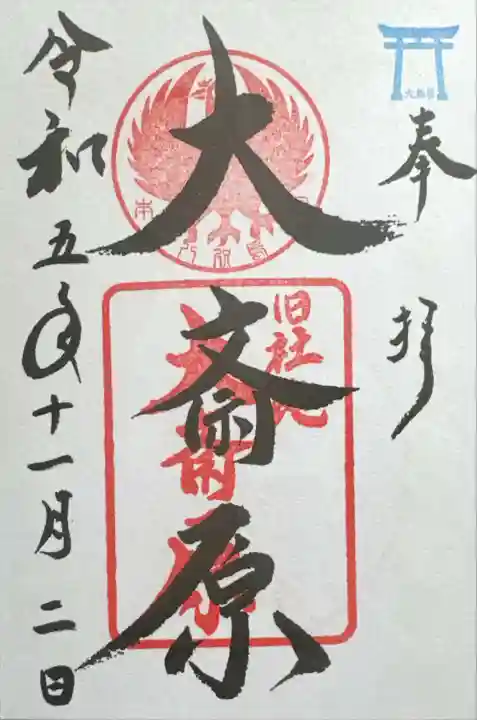 奉拝
大斎原
旧社地
大斎原
令和五年十一月二日